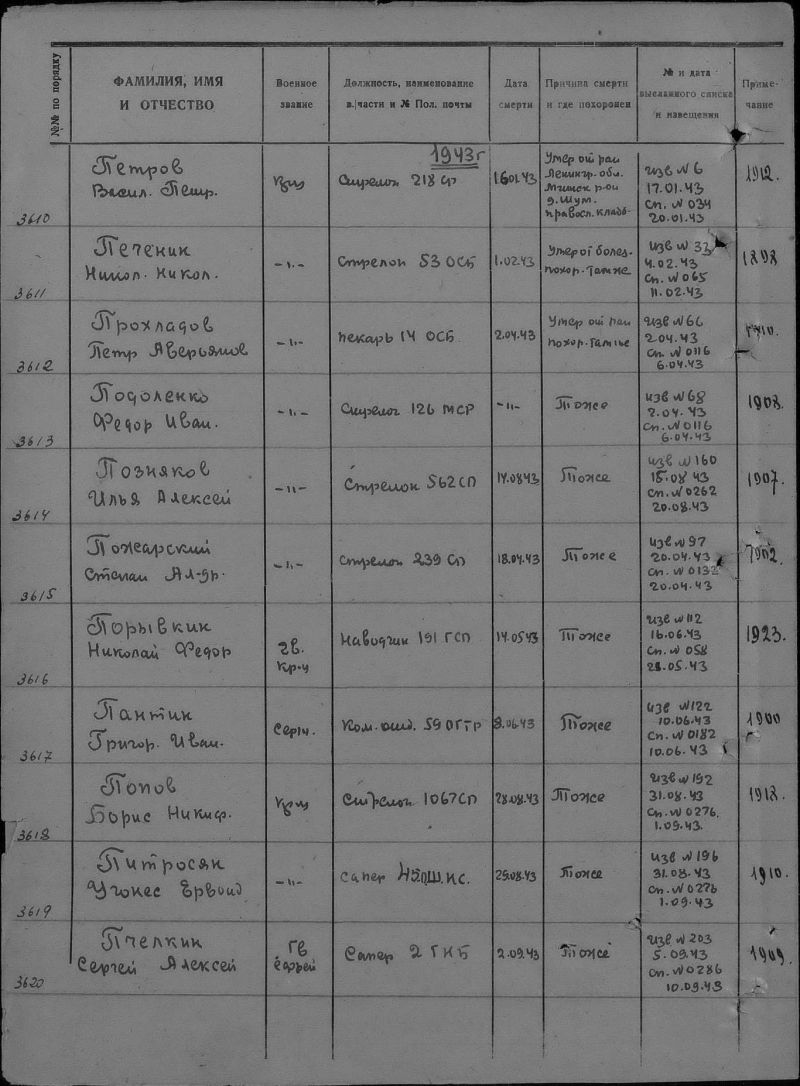 №№ по порядку
ФАМИЛИЯ, ИМЯ
И ОТЧЕСТВО
Военное
звание
Должность, наименование
в/части и № Пол. почты
Дата
смерти
Причина смерти
и где похоронен
№ и дата
высланного списка
и извещения
Приме-
чание
1943г
3610
Петров
Васил. Петр.
Кр-ц
Стрелок 218 СП
16.01.43
Умер от ран
Ленингр. обл.
Мгинск р-он
д. Шум.
Правосл. кладб.
изв N 6
17.01.43
Сп. N 034
20.01.43
1912.
3611
Печеник
Никол. Никол.
-"-
Стрелок 53 ОСБ
1.02.43
Умер от болез.
похор. там же
изв N 33
4.02.43
Сп. N 065
11.02.43
1898
3612
Прохладов
Петр Аверьянов
-"-
пекарь 14 ОСБ
2.04.43
Умер от ран
похор. там же
изв N 66
2.04.43
Сп. N 0116
6.04.43
3613
Подоленко
Федор Иван.
-"-
Стрелок 126 МСР
-"-
Тоже
изв N 68
2.04.43
Сп. N 0116
6.04.43
1908.
3614
Позняков
Илья Алексей
-"-
Стрелок 562 СП
14.08.43
Тоже
изв N 160
15.08.43
Сп. N 0262
20.08.43
1907.
3615
Пожарский
Степан Ал-др.
-"-
Стрелок 239 СП
18.04.43
Тоже
изв N 97
20.04.43
Сп. N 0132
20.04.43
1902.
3616
Порывкин
Николай Федор
гв.
Кр-ц
Наводчик 191 ГСП
14.05.43
Тоже
изв N 112
16.06.43
Сп. N 058
21.05.43
1923.
3617
Пантик
Григор. Иван.
Серж.
Ком. отд. 590 ГТР
8.06.43
Тоже
изв N 122
10.06.43
Сп. N 0182
10.06.43
1900
3618
Попов
Борис Никиф.
Кр-ц
Стрелок 1067 СП
28.08.43
Тоже
изв N 192
31.08.43
Сп. N 0276.
1.09.43.
1918.
3619
Питросян
Угонес Ервонд
-"-
сапер
29.08.43
Тоже
изв N 196
31.08.43
Сп. N 0276
1.09.43
1910.
3620
Пчелкин
Сергей Алексей
Гв
Сапер 2 ГКБ
2.09.43
Тоже
изв N 203
5.09.43
Сп. N 0286
10.09.43
1909.